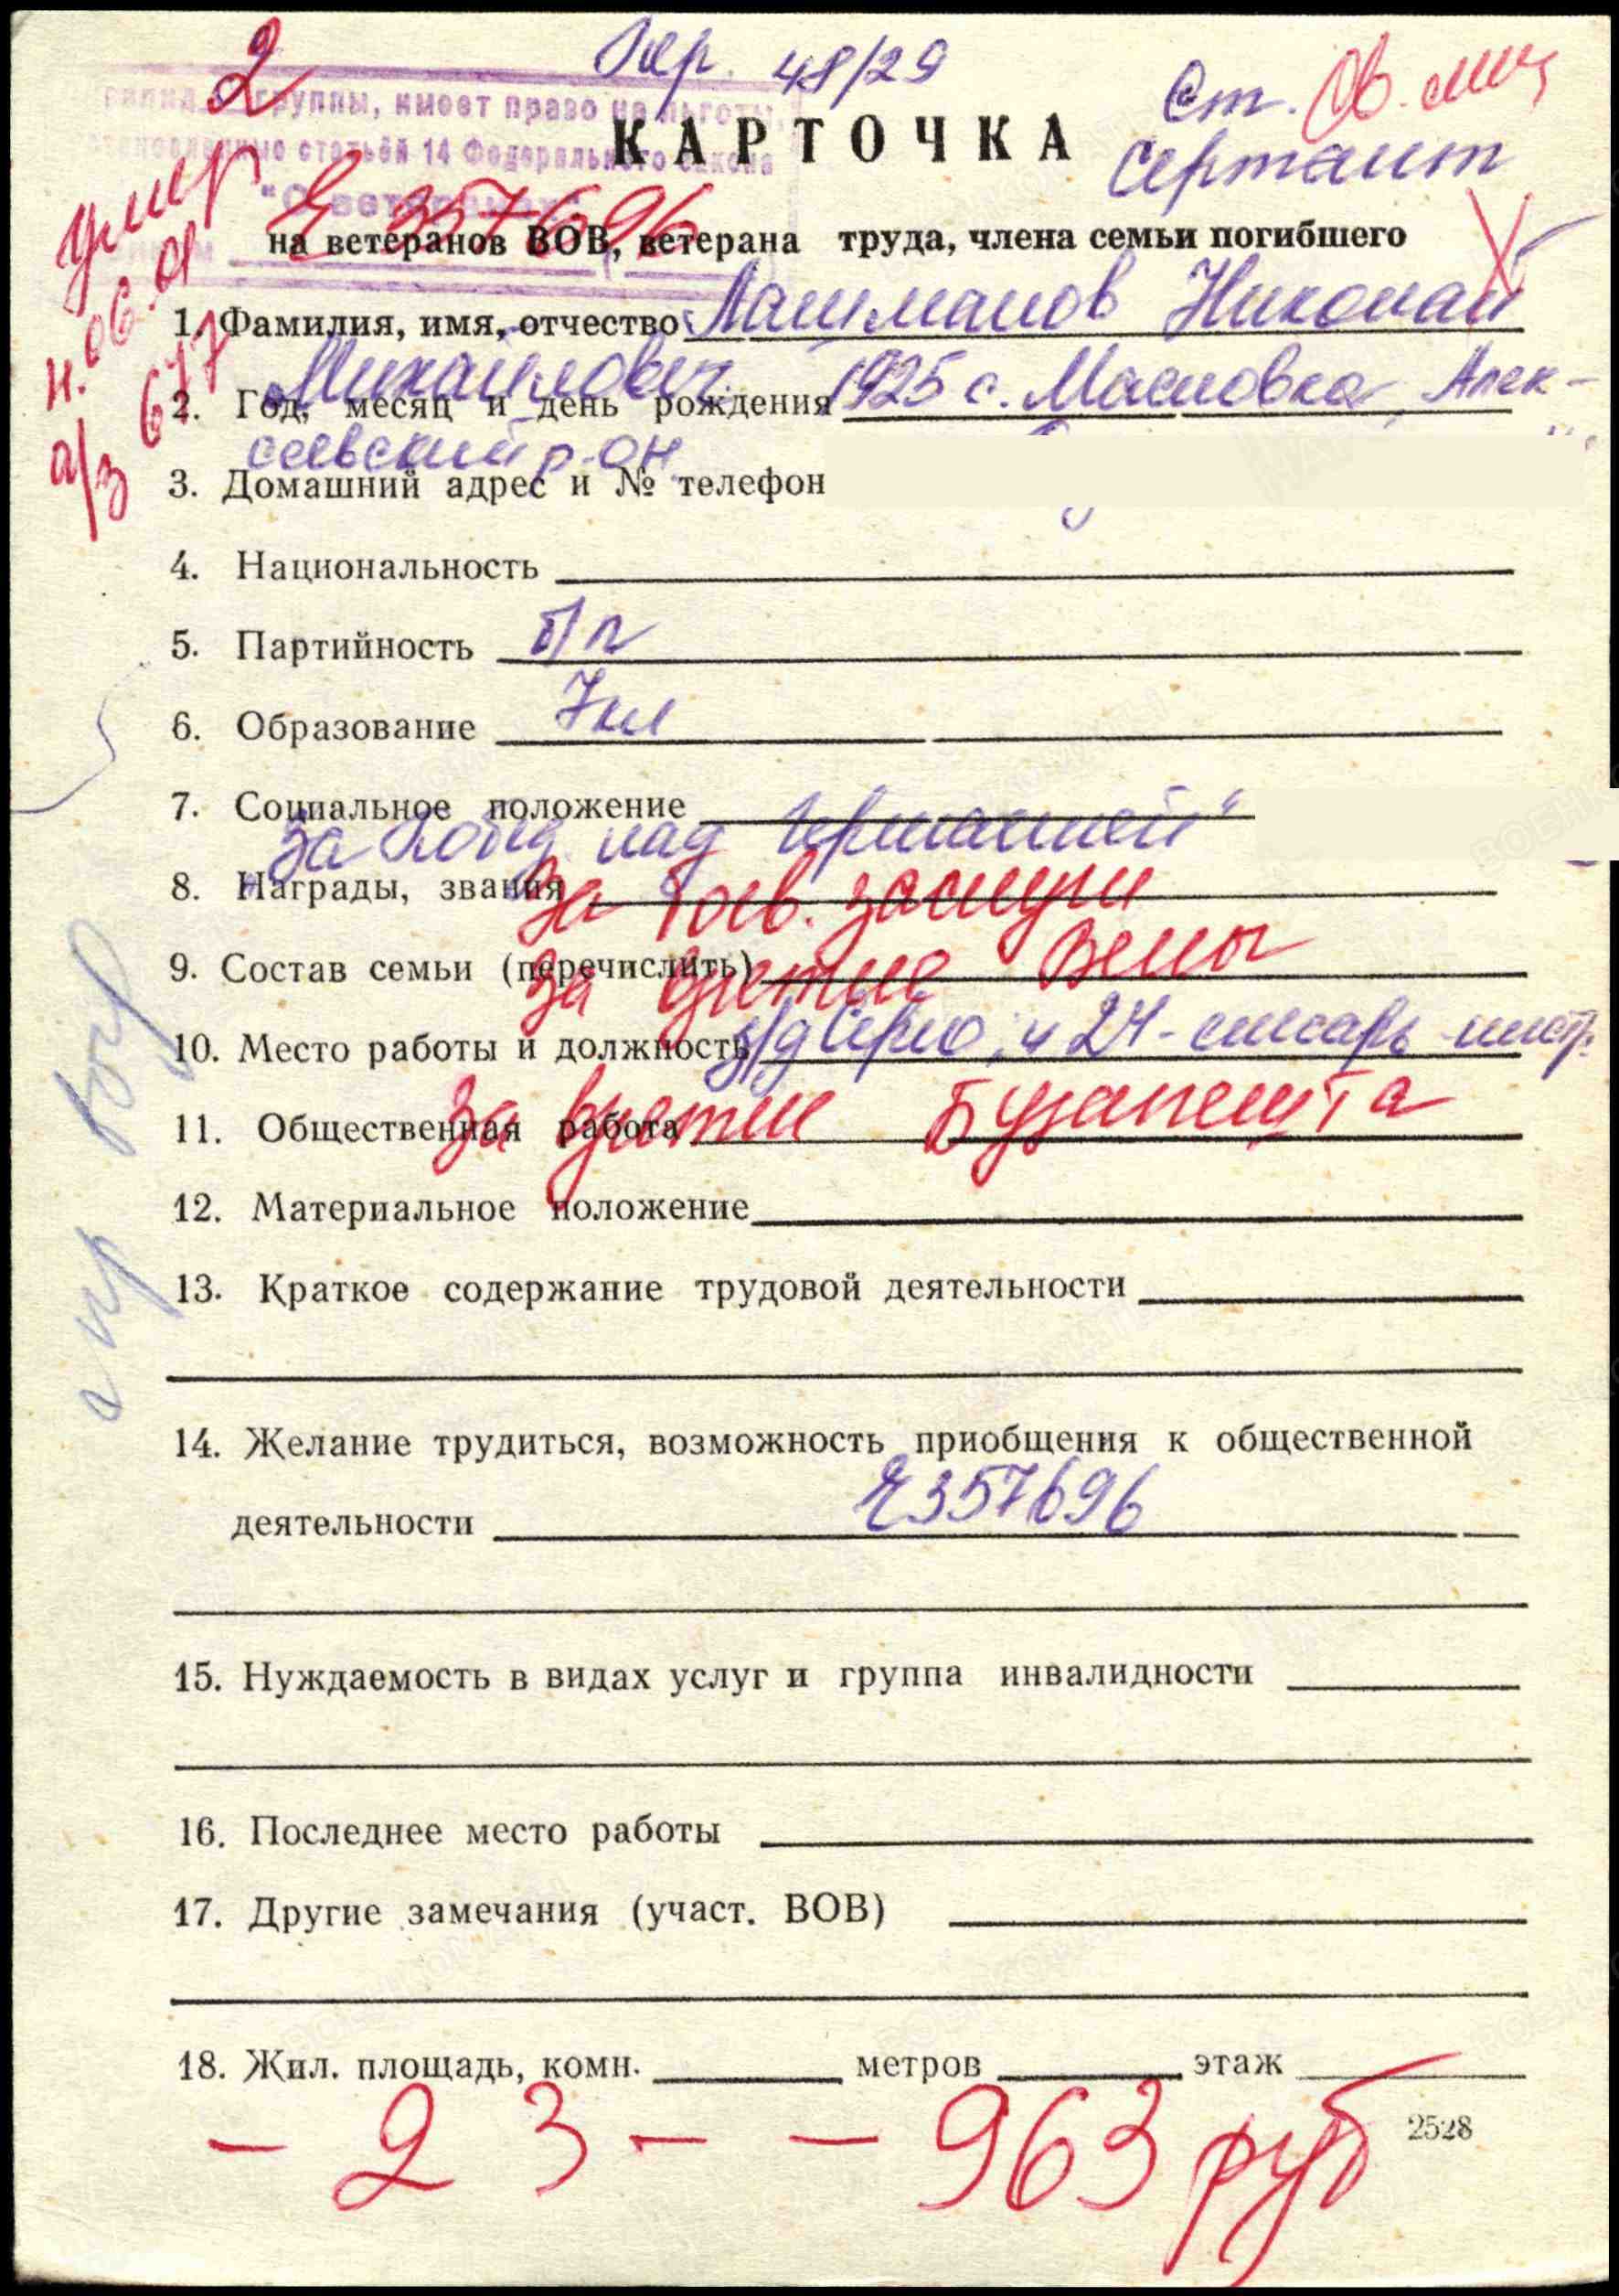 2
48/29
Ст.
Сержант
группы, имеет право на льготы,
статьёй 14 Федерального закона
"О ветеранах"
КАРТОЧКА
умер
357696
на ветеранов ВОВ, ветерана труда, члена семьи погибшего
1. Фамилия, имя, отчество Лашманов Николай
Михайлович
2. Год, месяц и день рождения 1925 с. Масловка, Алек-
сеевский р-он
3. Домашний адрес и № телефон
4. Национальность
5. Партийность б/п
6. Образование 7кл
7. Социальное положение
"За побед. над Германией"
8. Награды, звания За боев. заслуги
9. Состав семьи (перечислить) За взятие Вены
10. Место работы и должность
11. Общественная работа За взятие Будапешта
12. Материальное положение
13. Краткое содержание трудовой деятельности
14. Желание трудиться, возможность приобщения к общественной
деятельности 357696
15. Нуждаемость в видах услуг и группа инвалидности
16. Последнее место работы
17. Другие замечания (участ. ВОВ)
18. Жил. площадь, комн. метров этаж
- 23 - - 963 руб
2528